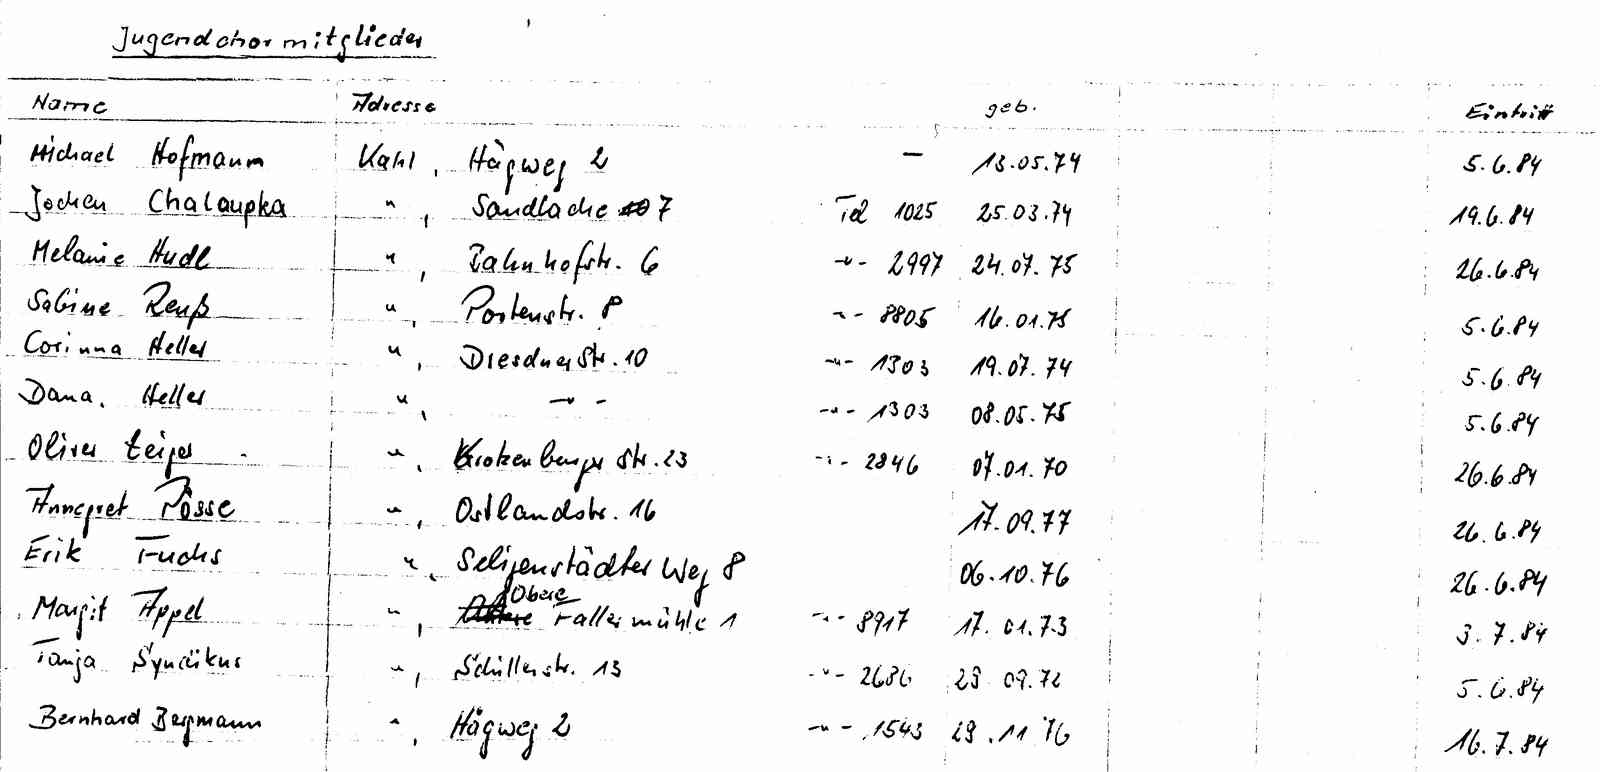 Jugendchormitglieder
Name Adresse geb. Eintritt
Michael Hofmann Kahl, Hägweg 2 — 13.05.74 5.6.84
Jochen Chalaupka ", Sandlache 7 Tel 1025 25.03.74 19.6.84
Melanie Hudl ", Bahnhofstr. 6 -"- 2997 24.07.75 26.6.84
Sabine Reuß ", Postenstr. 8 -"- 8805 16.01.75 5.6.84
Corinna Heller ", Dresdner Str. 10 -"- 1303 19.07.74 5.6.84
Dana Heller ", -"- -"- 1303 08.05.75 5.6.84
Oliver ", Krotzenburger Str. 23 -"- 2846 07.01.70 26.6.84
Annegret Posse ", Ostlandstr. 16 17.09.77 26.6.84
Erik Fuchs ", Seligenstädter Weg 8 06.10.76 26.6.84
Margit Appel ", Obere Fallermühle 1 -"- 8917 17.01.73 3.7.84
Tanja Syndikus ", Schillerstr. 13 -"- 2686 29 09.72 5.6.84
Bernhard Bergmann ", Hägweg 2 -"- 1543 29.11 76 16.7.84